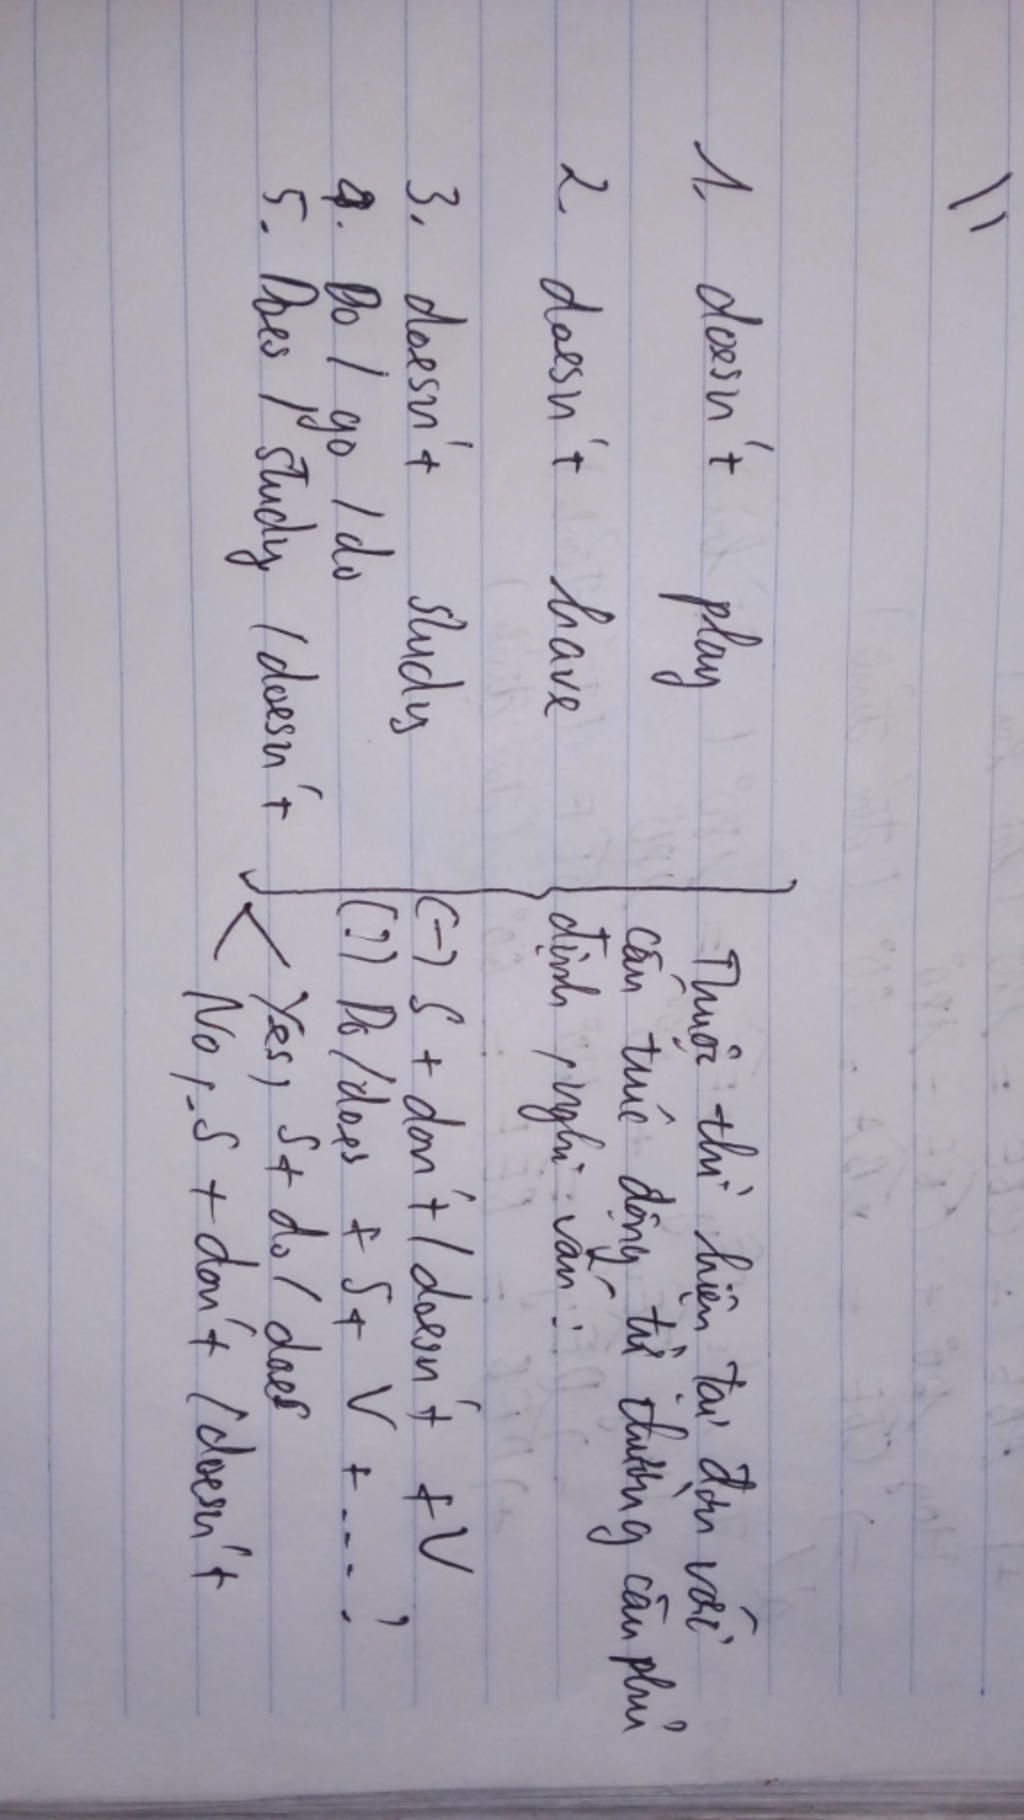 \\
1. doesn't play
2. doesn't have
3. doesn't study
4. Do / go / do
5. Does / study / doesn't
Thuộc thì hiện tại đơn với
cấu trúc động từ thường câu phủ
định, nghi vấn:
(-) S + don't / doesn't + V
(?) Do / does + S + V + .... ?
Yes, S + do / does
No, S + don't / doesn't